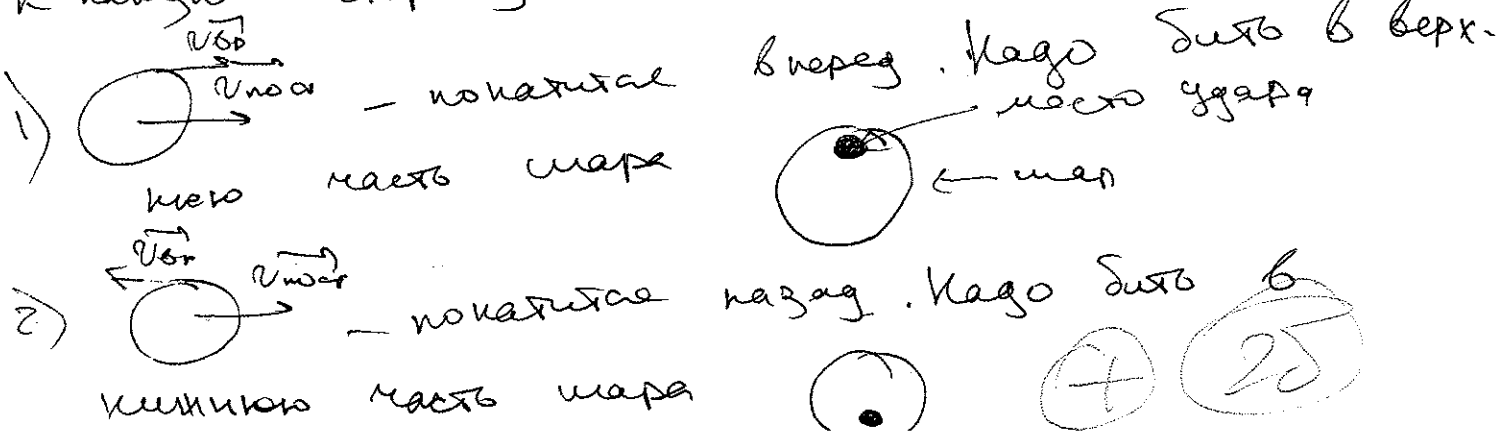 v вр
1) v пост – покатится вперед. Надо бить в верх-
место удара
нюю часть шара ← шар
v вр
2) v пост – покатится назад. Надо бить в
нижнюю часть шара + 2б